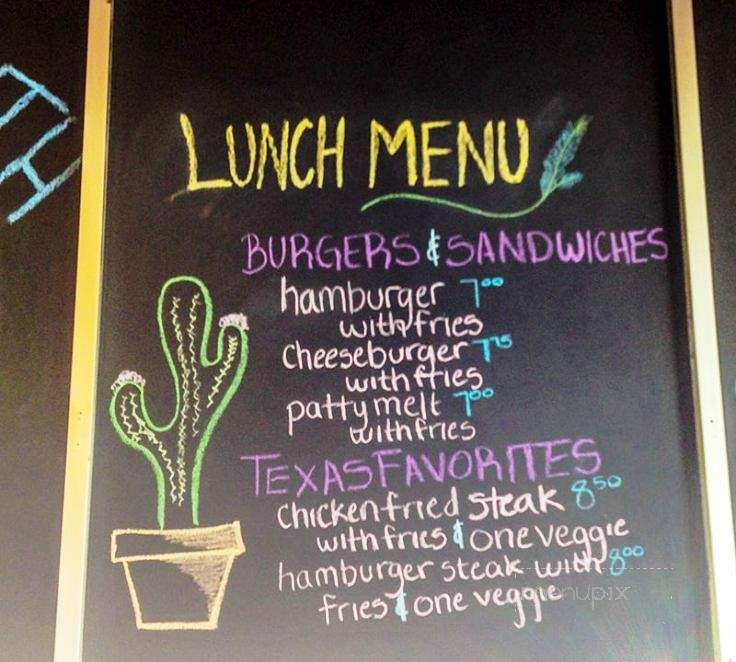 TH
LUNCH MENU
BURGERS & SANDWICHES
hamburger 7⁰⁰
with fries
cheeseburger 7⁷⁵
with fries
patty melt 7⁰⁰
with fries
TEXAS FAVORITES
chicken fried steak 8⁵⁰
with fries & one veggie
hamburger steak with 8⁰⁰
fries & one veggie
menupix